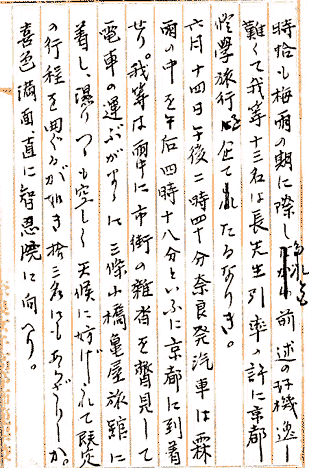 時恰も梅雨の期に際し 前述の好機逸し
難くて我等十三名は長先生引率の許に京都
修學旅行 企てれたるなりき。
六月十四日午後二時四十分奈良発汽車は霖
雨の中を午后四時十八分といふに京都に到着
せり。我等は雨中に市街の雑沓を瞥見して
電車の運ぶがまゝに三條小橋亀屋旅館に
着し、濕りつゝも空しく天候に妨げられて予定
の行程を曲ぐるが如き拾三名にもあらざりしか。
喜色満面、直に智恩院に向へり。